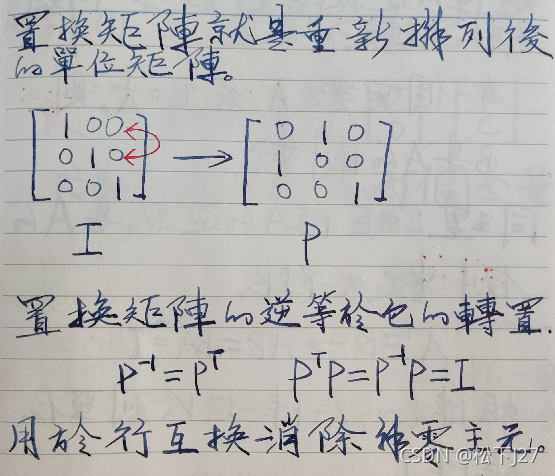 置換矩陣就是重新排列後
的單位矩陣。
1 0 0
0 1 0
0 0 1
0 1 0
1 0 0
0 0 1
I P
置換矩陣的逆等於它的轉置.
P⁻¹=Pᵀ PᵀP=P⁻¹P=I
用於行互換消除 零主元。
CSDN @松下J27